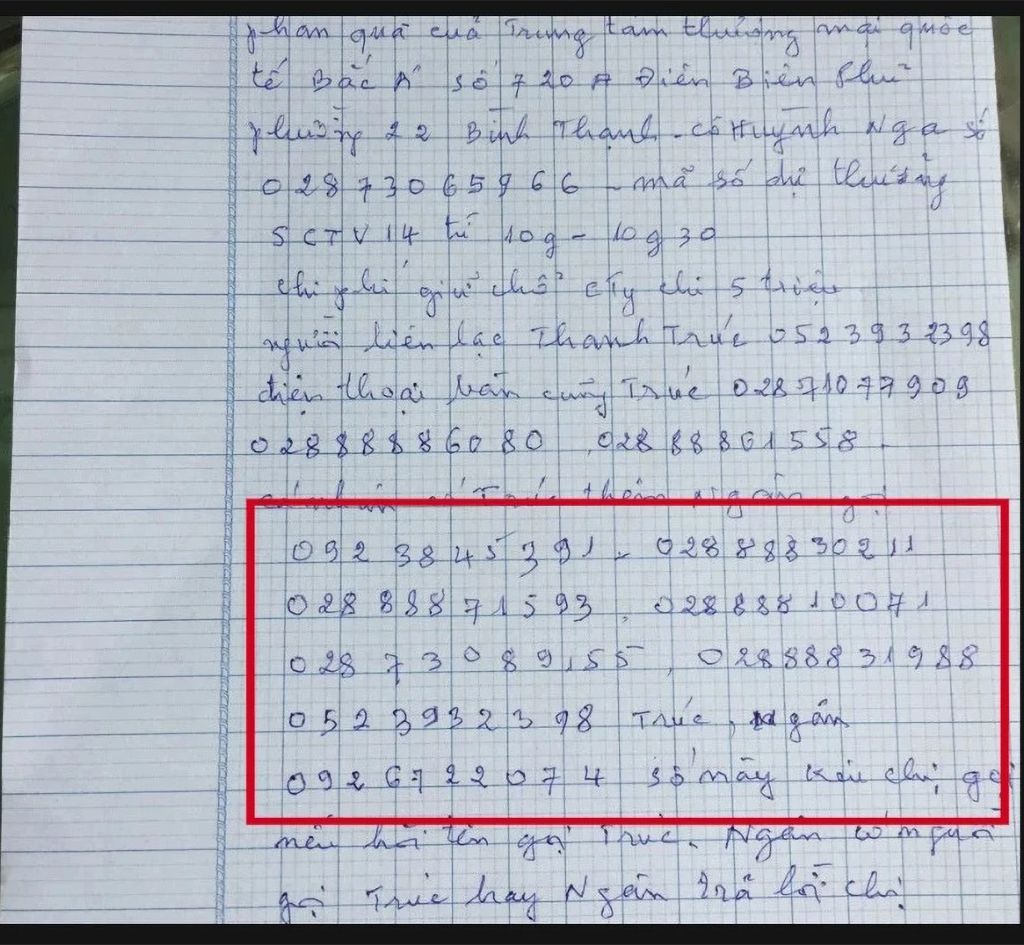 phần quà của Trung tâm thương mại quốc
tế Bắc Á số 720A Điện Biên Phủ
phường 22 Bình Thạnh - cô Huỳnh Nga số
02873065966 - mã số dự thưởng
SCTV14 từ 10g - 10g30
chi phí giữ chỗ cty chi 5 triệu
người liên lạc Thanh Trúc 0523932398
điện thoại bàn cũng Trúc 02871077909
02888886080, 02888861558.
Trúc thêm Ngân gọi
0923845391 - 02888830211
02888871593, 02888810071
02873089155, 02888831988
0523932398 Trúc, Ngân
0926722074 số này khi chị gọi
nếu hỏi tên gọi Trúc. Ngân có người
gọi Trúc hay Ngân trả lời chị